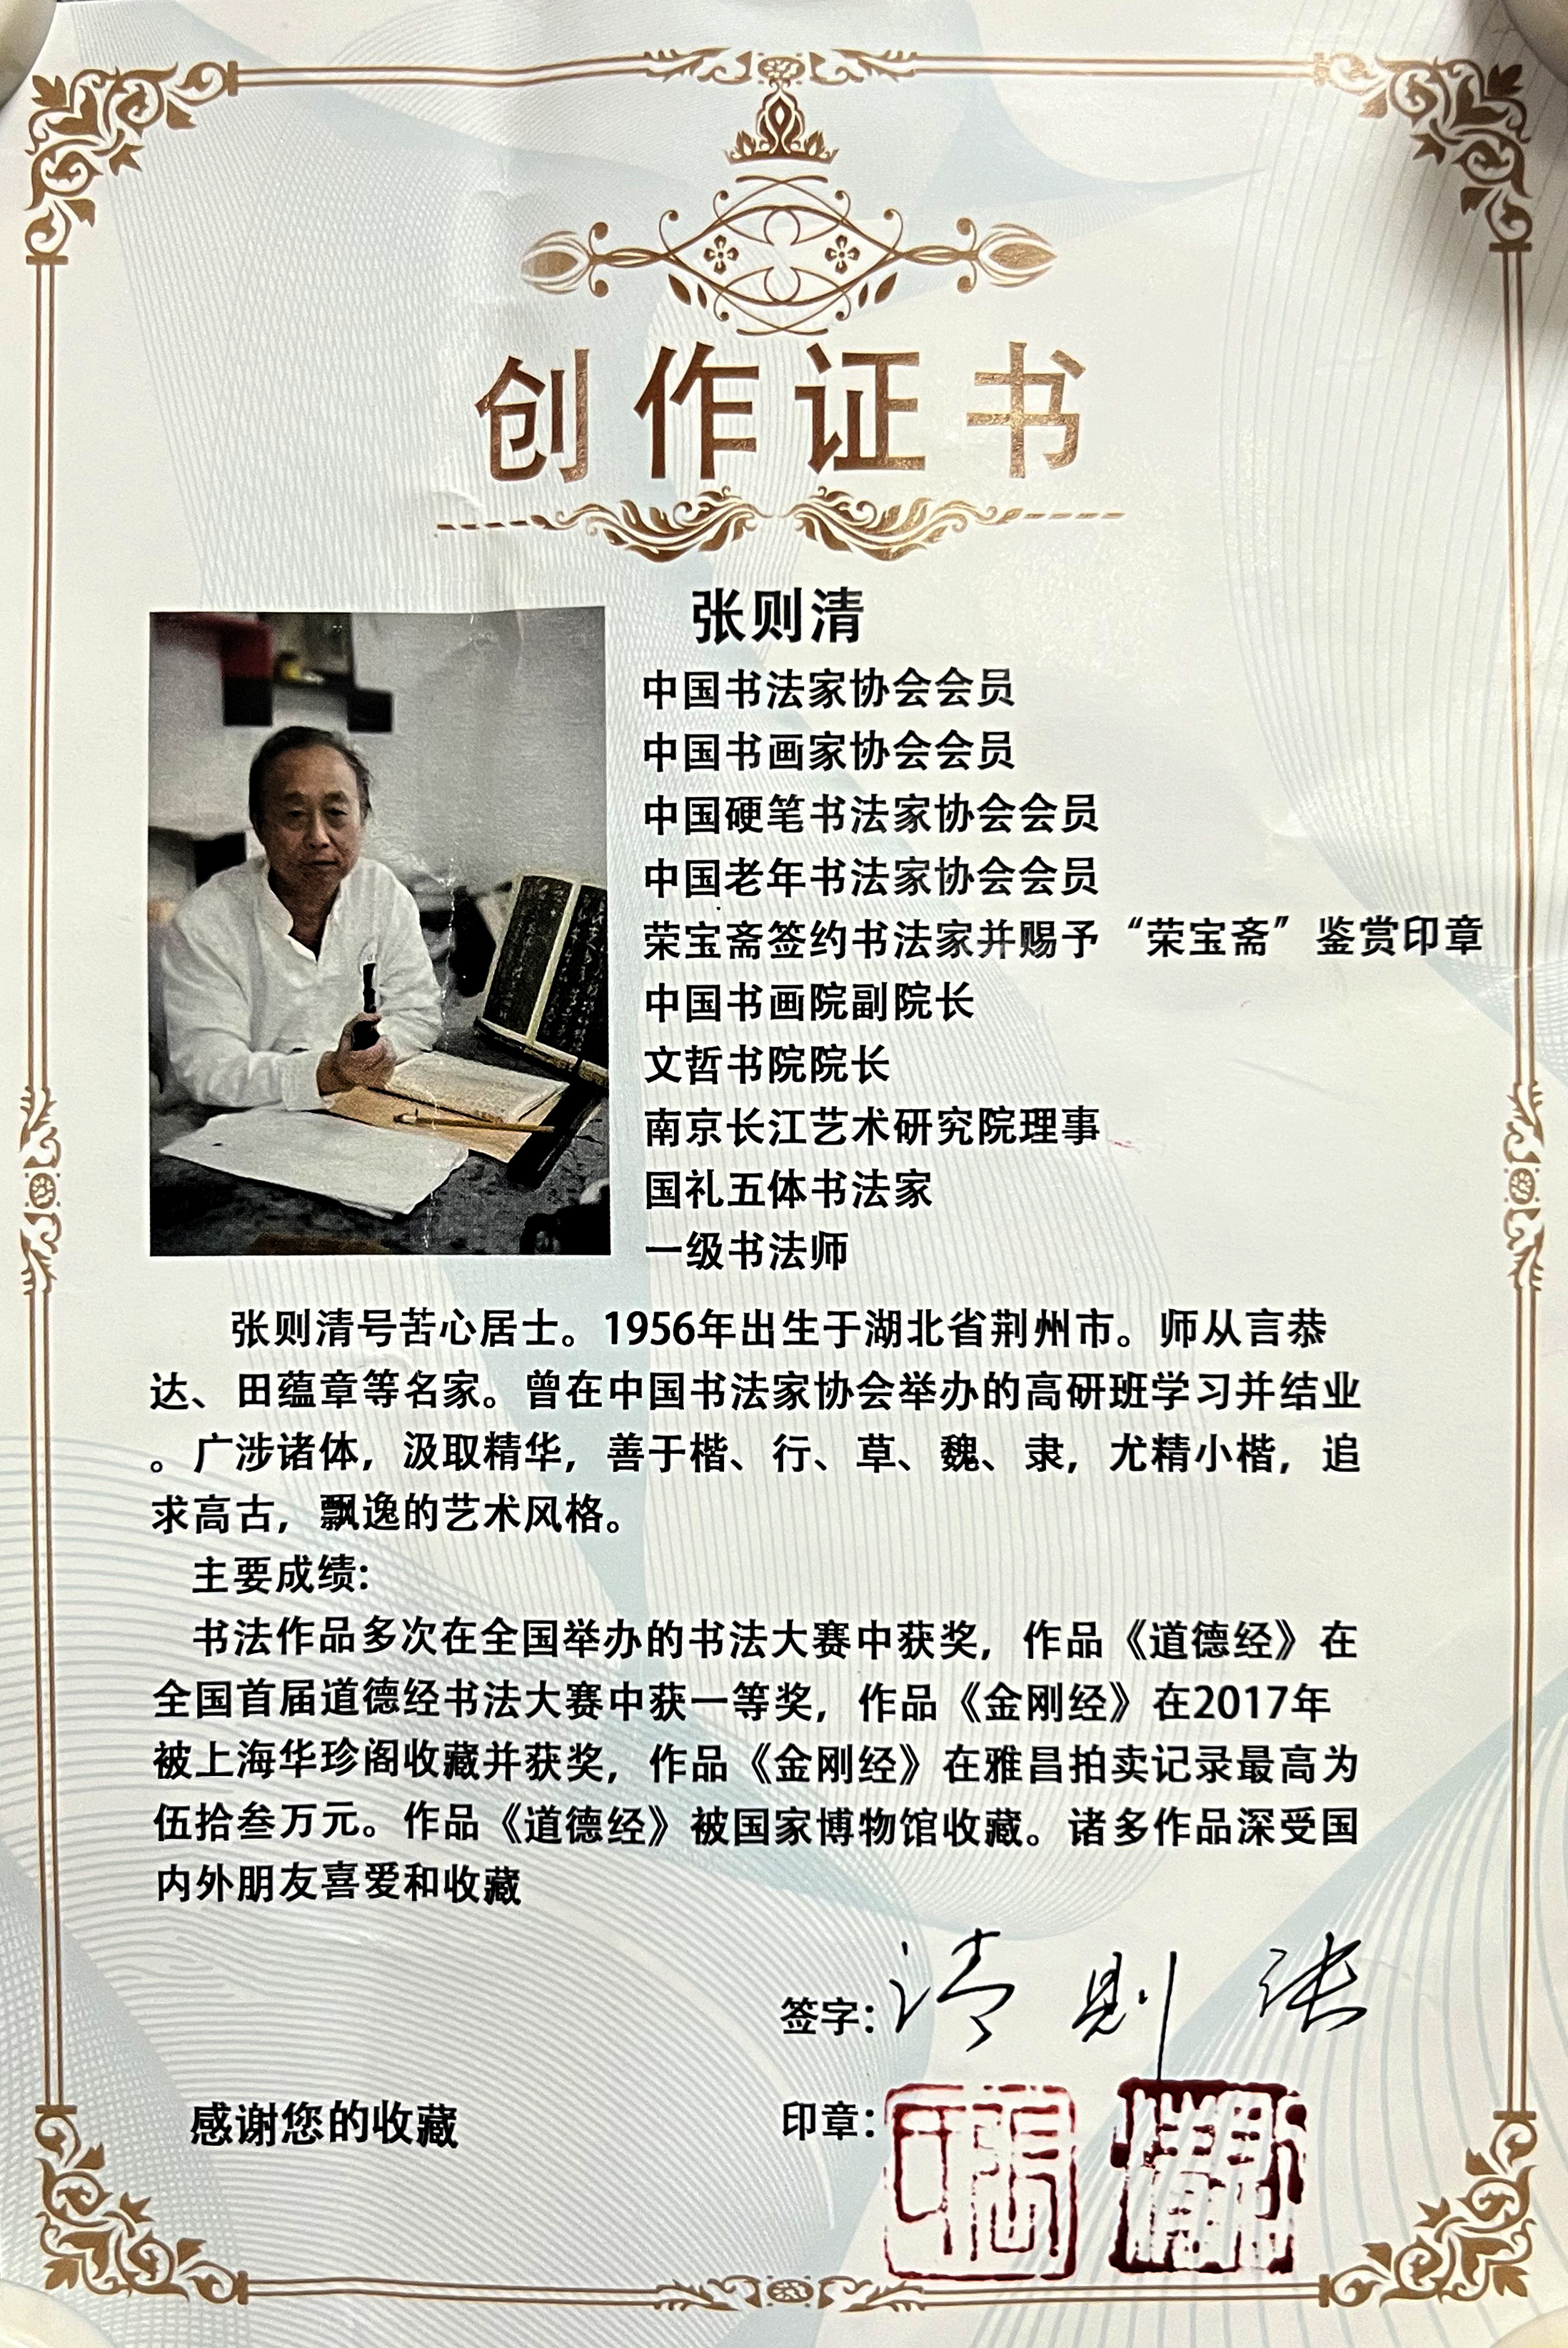 创作证书
张则清
中国书法家协会会员
中国书画家协会会员
中国硬笔书法家协会会员
中国老年书法家协会会员
荣宝斋签约书法家并赐予“荣宝斋”鉴赏印章
中国书画院副院长
文哲书院院长
南京长江艺术研究院理事
国礼五体书法家
一级书法师
张则清号苦心居士。1956年出生于湖北省荆州市。师从言恭
达、田蕴章等名家。曾在中国书法家协会举办的高研班学习并结业
。广涉诸体，汲取精华，善于楷、行、草、魏、隶，尤精小楷，追
求高古，飘逸的艺术风格。
主要成绩:
书法作品多次在全国举办的书法大赛中获奖，作品《道德经》在
全国首届道德经书法大赛中获一等奖，作品《金刚经》在2017年
被上海华珍阁收藏并获奖，作品《金刚经》在雅昌拍卖记录最高为
伍拾叁万元。作品《道德经》被国家博物馆收藏。诸多作品深受国
内外朋友喜爱和收藏
签字: 清 则 张
感谢您的收藏
印章: